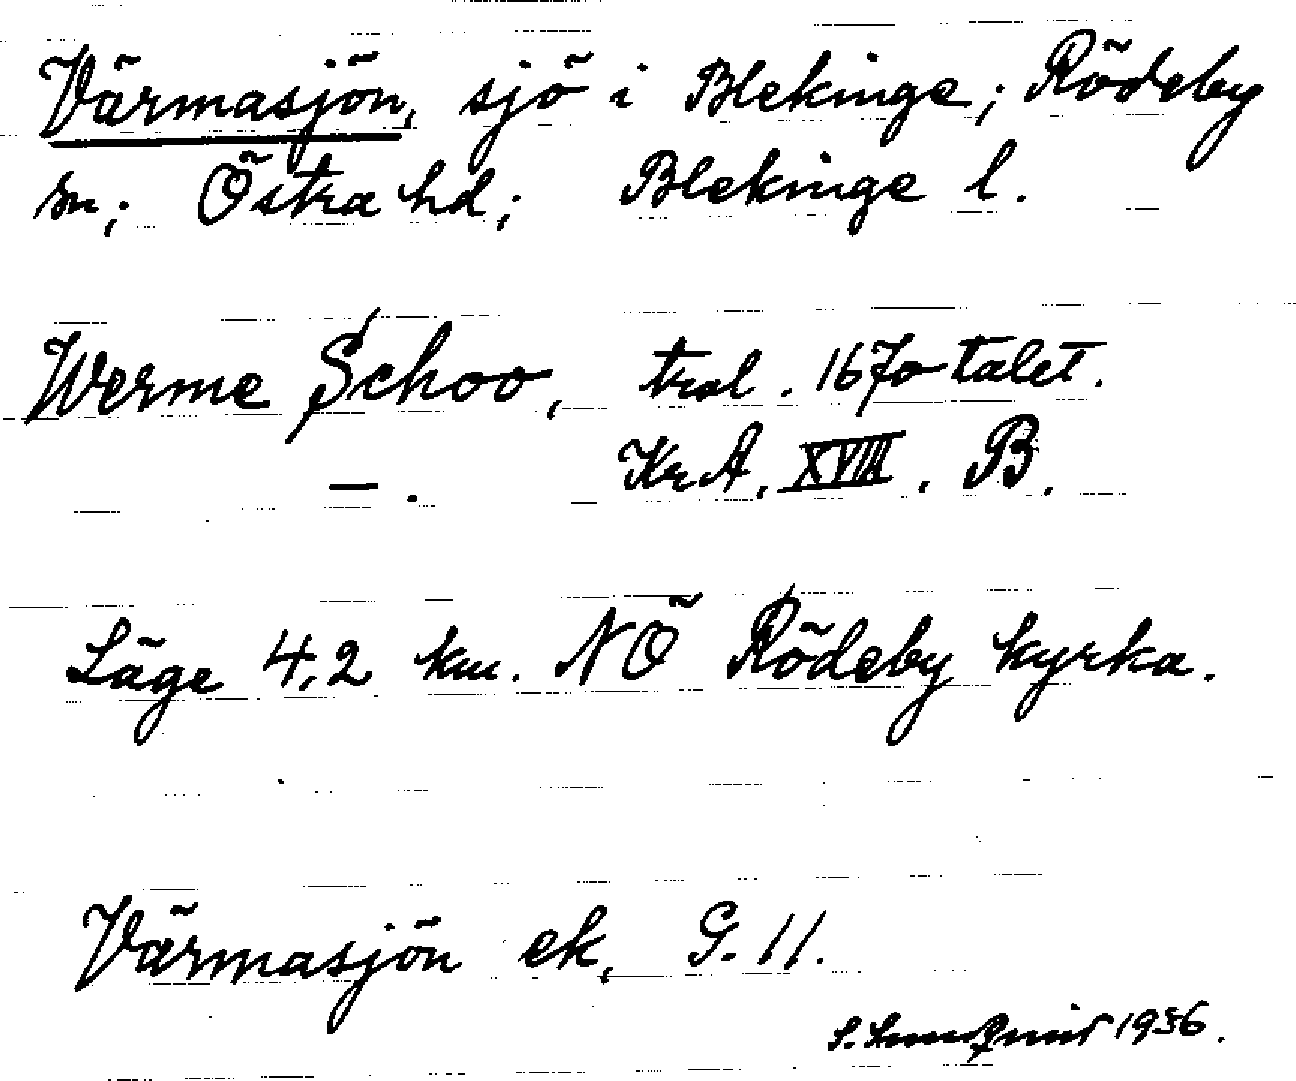 Värmasjön, sjö i Blekinge; Rödeby
sn; Östra hd; Blekinge l.
Werme Schoo, tral. 1670-talet.
— . KrA. XVIII. B.
Läge 4,2 km. NÖ Rödeby kyrka.
Värmasjön ek, G. 11.
S. Sundqvist 1936.